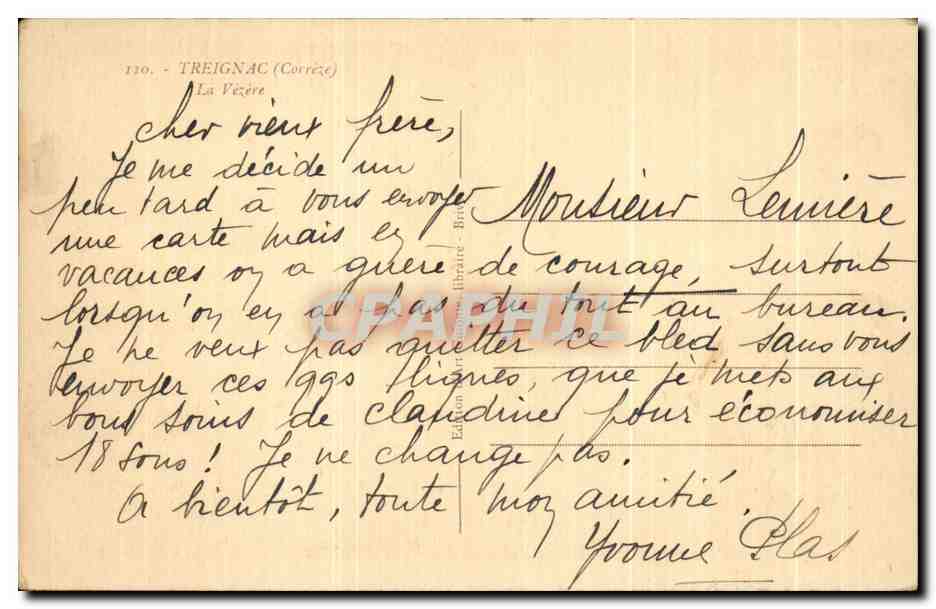 110. - TREIGNAC (Corrèze)
La Vézère
Cher vieux frère,
Je me décide un
peu tard à vous envoyer
une carte mais en
vacances on a guère de courage, surtout
lorsqu'on en a pas du tout au bureau.
Je ne veux pas quitter ce bled sans vous
envoyer ces qqs lignes, que je mets aux
bons soins de Claudine pour économiser
18 sous ! Je ne change pas.
A bientôt, toute mon amitié.
Yvonne Plas
Monsieur Lemière
Edition d'Art libraire - Brive
CPAPHIL